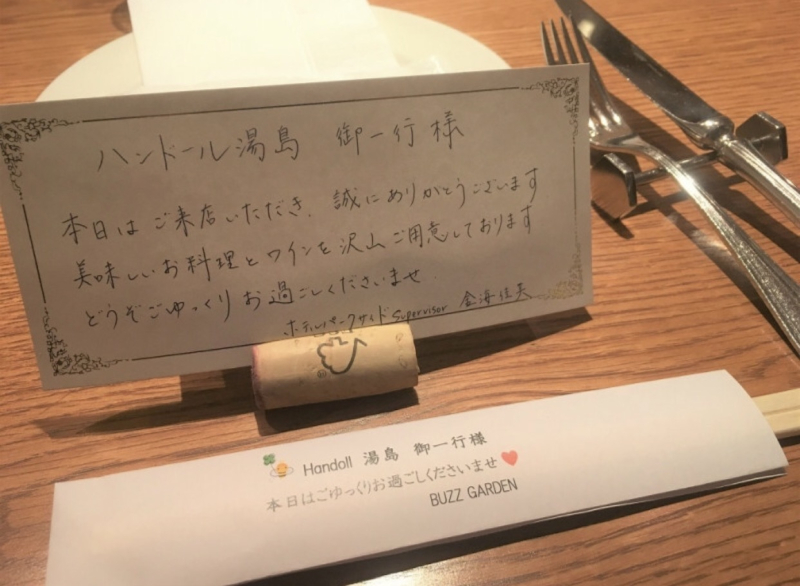 ハンドール湯島 御一行様
本日はご来店いただき、誠にありがとうございます
美味しいお料理とワインを沢山ご用意しております
どうぞごゆっくりお過ごしくださいませ
ホテルパークサイド Supervisor 金海佳夫
Handoll 湯島 御一行様
本日はごゆっくりお過ごしくださいませ
BUZZ GARDEN